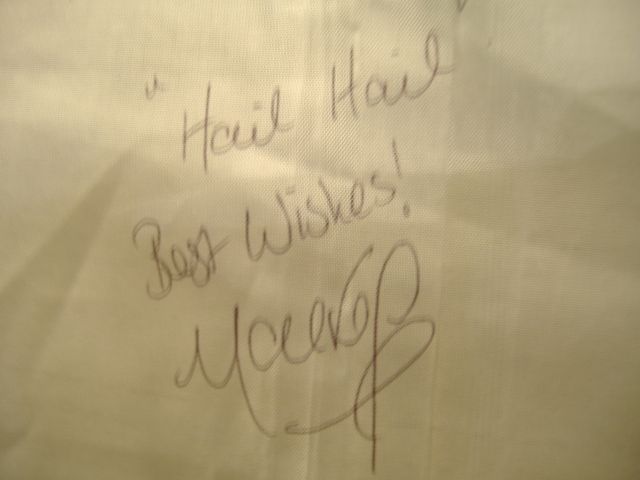 "Hail Hail"
Best Wishes!